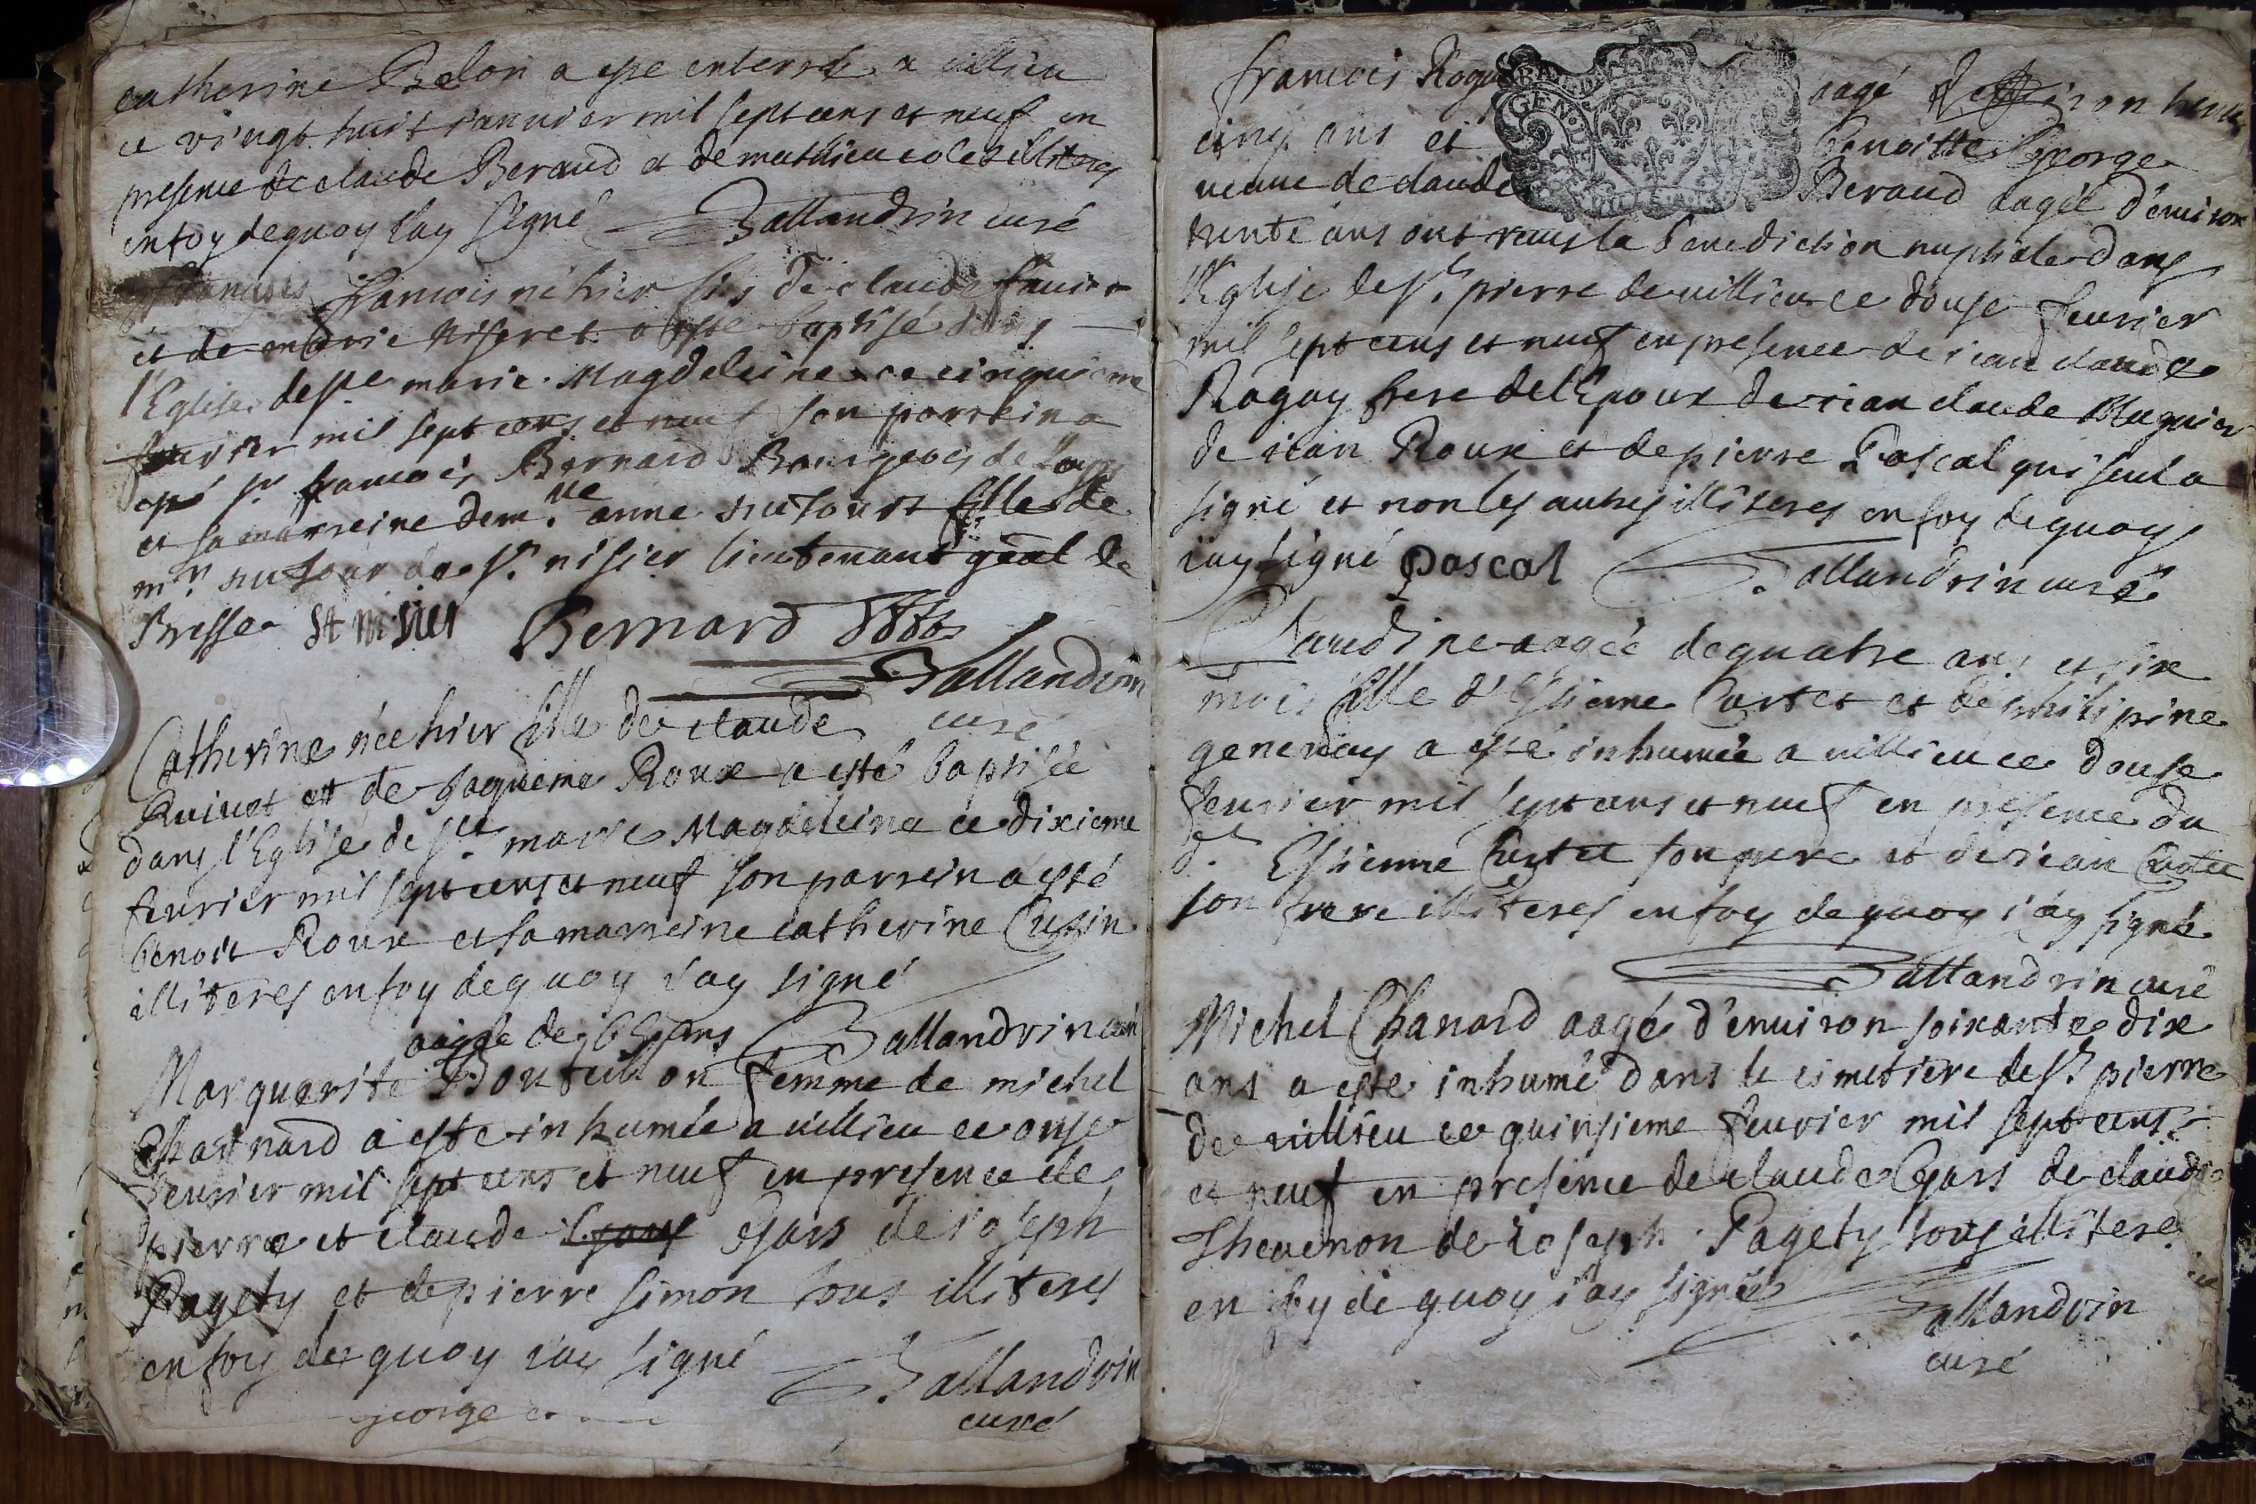 catherine Belon a esté enterré a villieu
ce vingt huit janvier mil sept cens et neuf en
presence de claude Beraud et de mathieu illiteres
en foy de quoy j'ay signé Ballandrin curé
francois né hier fils de claude favier
et de marie a esté baptisé dans
l'Eglise de ste marie Magdeleine ce cinquieme
fevrier mil sept cens et neuf son parrein a
esté sr francois Bernard Bourgeois de
et sa marreine demlle anne fille de
mr de st nisier lieutenant gēal de
Bresse St nisier Bernard
Ballandrin
curé
Catherine née hier fille de claude
Quivet et de Jaqueme Roux a esté baptisée
dans l'Eglise de ste marie Magdeleine ce dixieme
fevrier mil sept cens et neuf son parrein a esté
benoit Roux et sa marreine catherine Cusin
illiteres en foy de quoy j'ay signé
aagée de ans Ballandrin curé
Marguerite Bouteillon femme de michel
Chanard a esté inhumée a villieu ce onse
fevrier mil sept cens et neuf en presence de
pierre et claude Gars de joseph
Pagety et de pierre simon tous illiteres
en foy de quoy j'ay signé Ballandrin
curé
george
francois aagé d'environ
cinq ans et benoitte George
veuve de claude Beraud aagée d'environ
trente ans ont receus la benediction nuptiale dans
l'Eglise de st pierre de villieu ce douse fevrier
mil sept cens et neuf en presence de jean claude
Roguy frere de l'Epoux de jean claude Mugnier
de jean Roux et de pierre Pascal qui seul a
signé et non les autres illiteres en foy de quoy
j'ay signé Pascal Ballandrin curé
Claudine aagée de quatre ans et six
mois fille d'Estienne Curtet et de philipine
genevay a esté inhumée a villieu ce douse
fevrier mil sept cens et neuf en presence du
dt Estienne Curtet son pere et de jean Curtet
son frere illiteres en foy de quoy j'ay signé
Ballandrin curé
Michel Chanard aagé d'environ soixante dix
ans a esté inhumé dans le cimetiere de st pierre
de villieu ce quinsieme fevrier mil sept cens
et neuf en presence de claude Gars de claude
Thevenon de Joseph Pagety tous illiteres
en foy de quoy j'ay signé
Ballandrin
curé